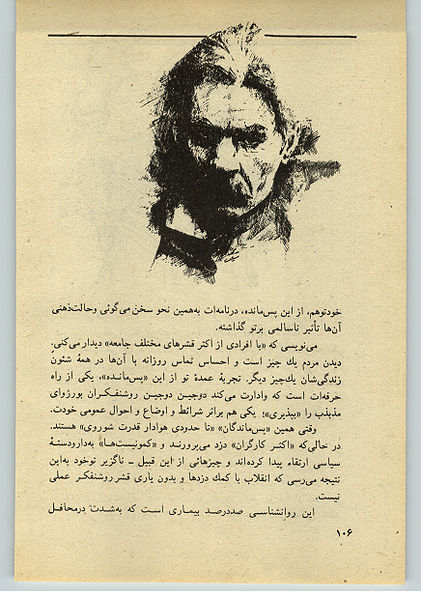 خودتوهم، از این پس‌مانده، درنامه‌ات به‌همین نحو سخن می‌گوئی وحالت‌ذهنی
آن‌ها تأثیر ناسالمی برتو گذاشته.
می‌نویسی که «با افرادی از اکثر قشرهای مختلف جامعه» دیدار می‌کنی.
دیدن مردم یك چیز است و احساس تماس روزانه با آن‌ها در همهٔ شئون
زندگی‌شان یك‌چیز دیگر. تجربهٔ عمدهٔ تو از این «پس‌مانده»، یکی از راه
حرفه‌ات است که وادارت می‌کند دوجین دوجین روشنفکران بورژوای
مذبذب را «بپذیری»؛ یکی هم براثر شرائط و اوضاع و احوال عمومی خودت.
وقتی همین «پس‌ماندگان» «تا حدودی هوادار قدرت شوروی» هستند.
در حالی‌که «اکثر کارگران» دزد می‌پرورند و «کمونیست‌ها» به‌دارودستهٔ
سیاسی ارتقاء پیدا کرده‌اند و چیزهائی از این قبیل ـ ناگزیر توخود به‌این
نتیجه می‌رسی که انقلاب با کمك دزدها و بدون یاری قشر روشنفکر عملی
نیست.
این روانشناسی صددرصد بیماری است که به‌شدت درمحافل
۱۰۶